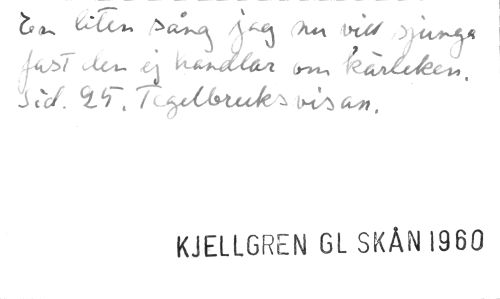 En liten sång jag nu vill sjunga
fast den ej handlar om kärleken.
Sid. 25. Tegelbruksvisan.
KJELLGREN GL SKÅN 1960